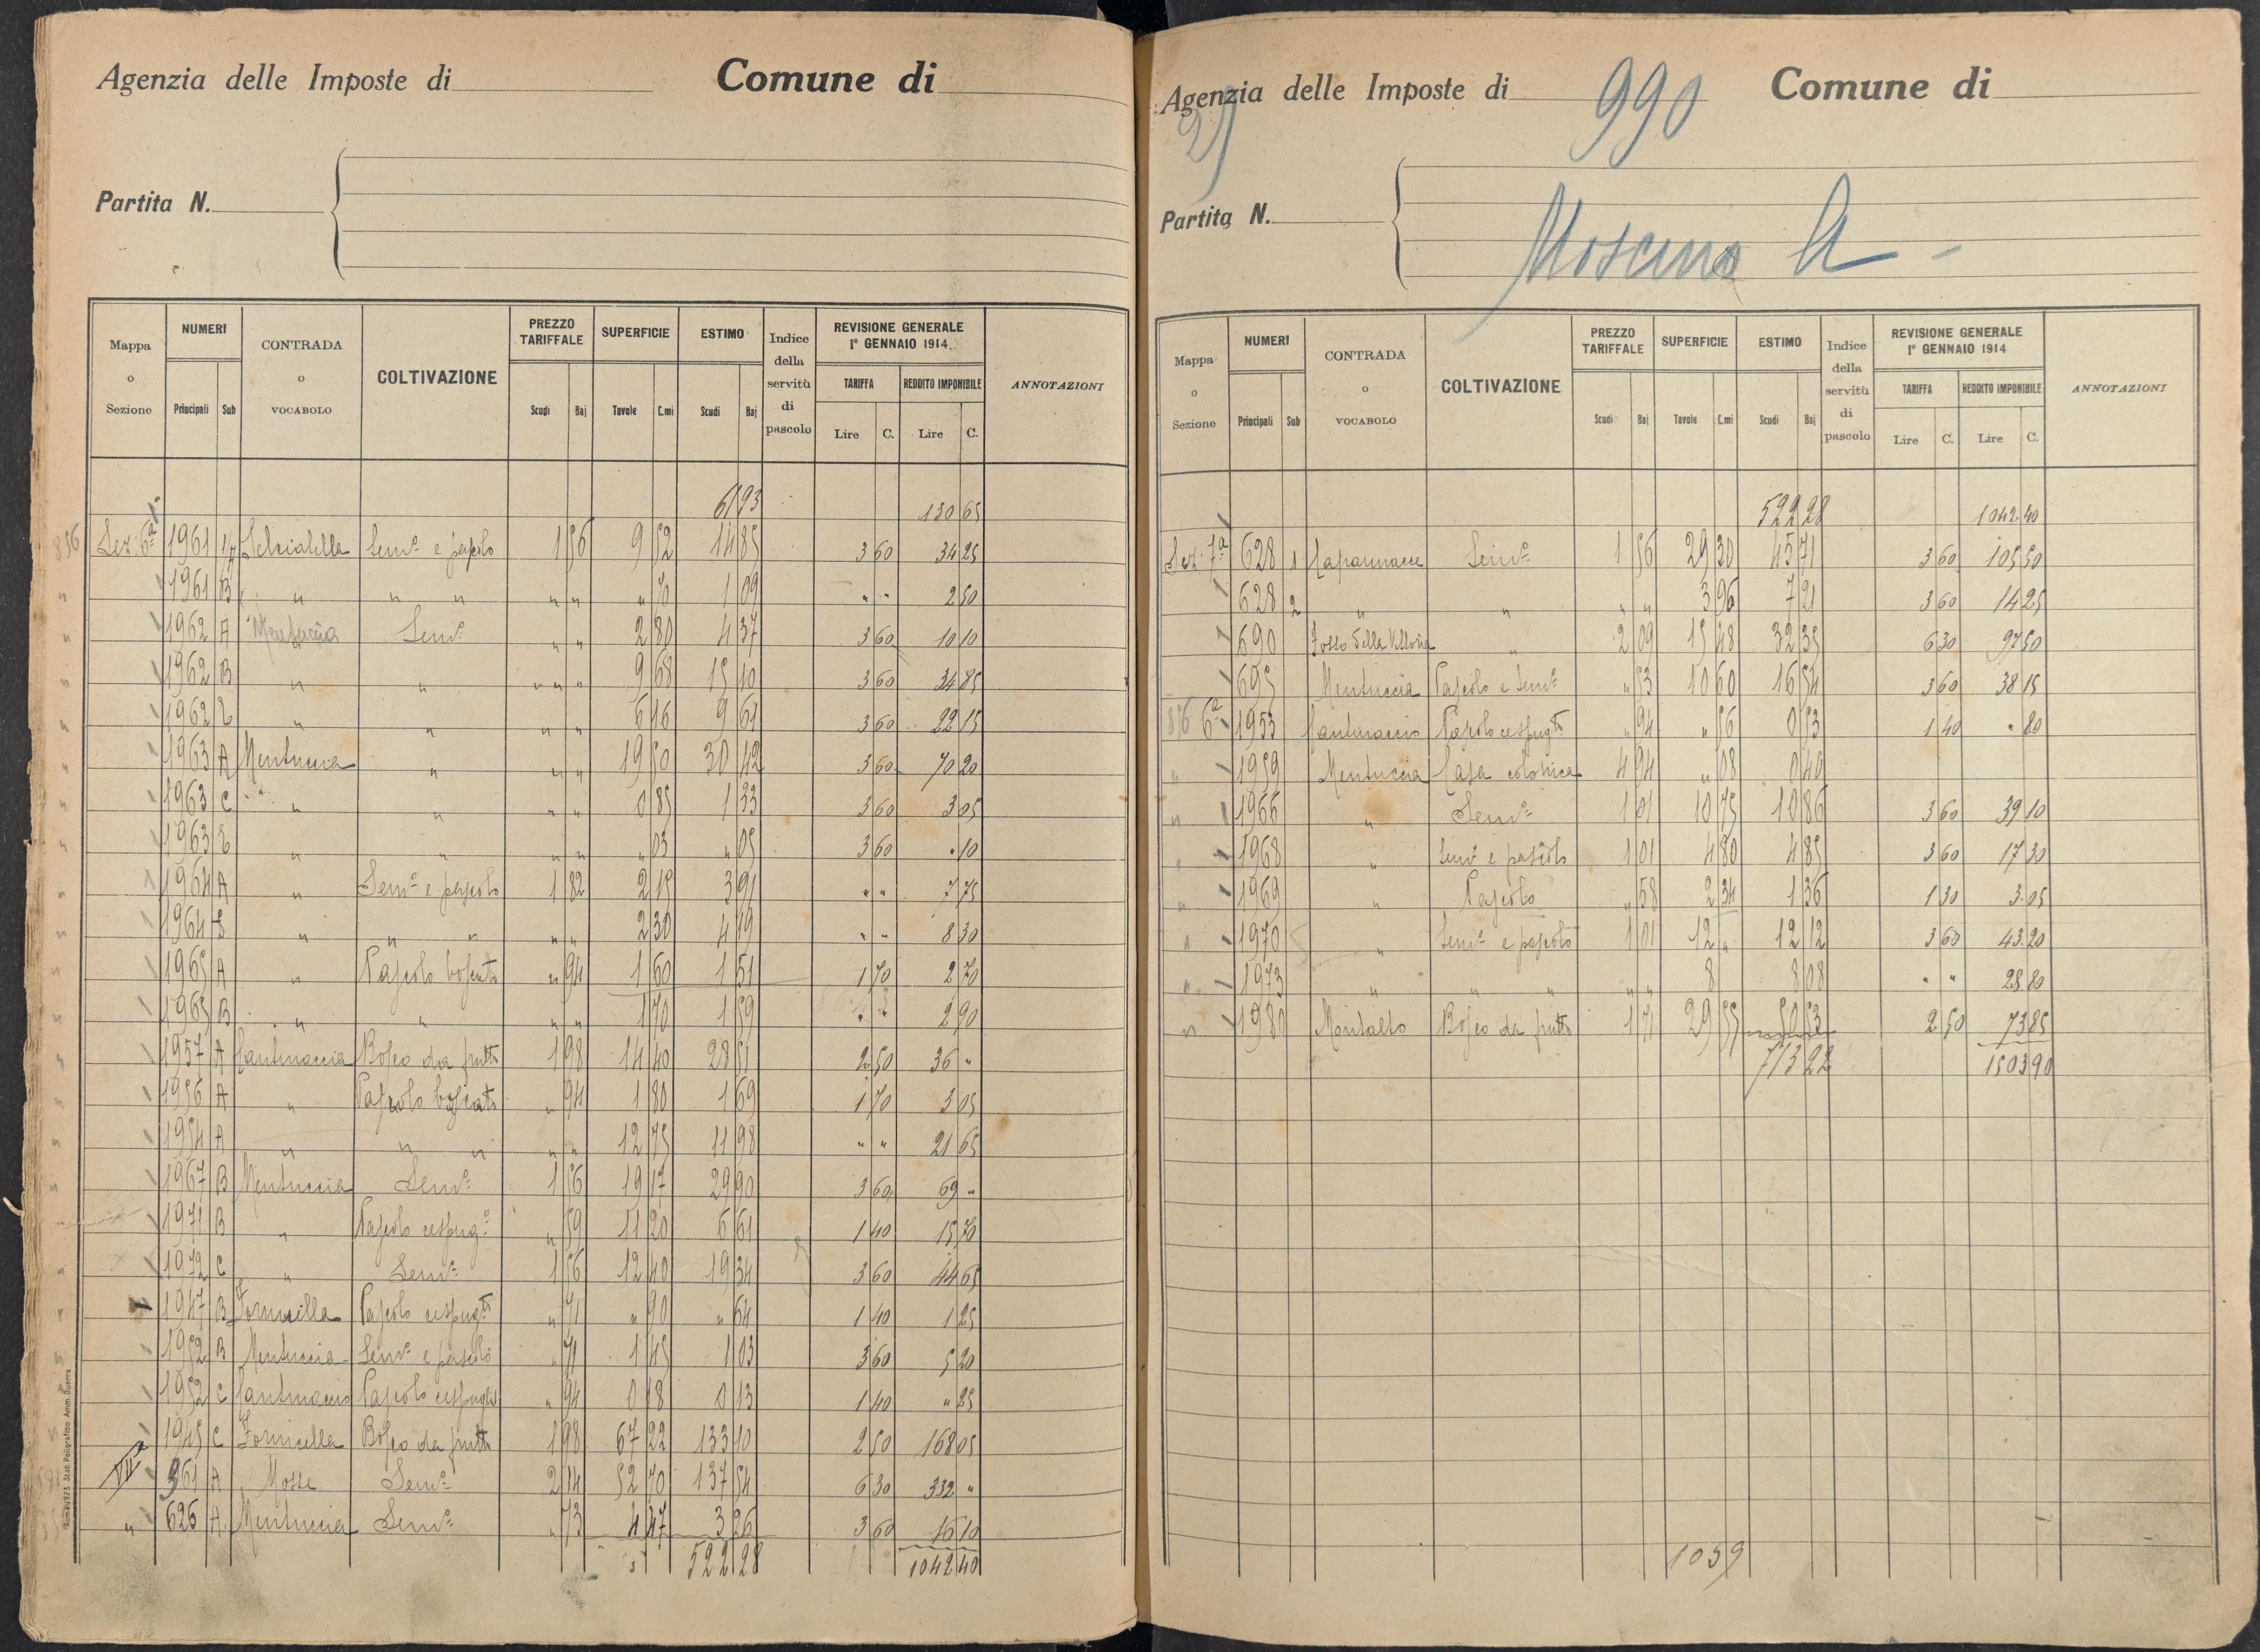 Agenzia delle Imposte di Comune di
Partita N.
Mappa o Sezione NUMERI Principali Sub CONTRADA o VOCABOLO COLTIVAZIONE PREZZO TARIFFALE Scudi Baj SUPERFICIE Tavole C.mi ESTIMO Scudi Baj Indice della servitù di pascolo REVISIONE GENERALE 1° GENNAIO 1914. TARIFFA Lire C. REDDITO IMPONIBILE Lire C. ANNOTAZIONI
61 93 130 65
856 Sez. 6ª 1961 Selciatella Sem.o e pascolo 1 56 9 52 14 85 3 60 34 25
" 1961 B " " " " " " 70 1 09 " " 2 50
" 1962 A Sem.o " " 2 80 4 37 3 60 10 10
" 1962 B " " " " 9 68 15 10 3 60 34 85
" 1962 E " " " " 6 16 9 61 3 60 22 15
" 1963 A Mentuccia " " " 19 50 30 42 3 60 70 20
" 1963 C " " " " 0 85 1 33 3 60 3 05
" 1963 E " " " " " 03 " 05 3 60 " 10
" 1964 A " Sem.o e pascolo 1 82 2 15 3 91 " " 7 75
" 1964 E " " " " " 2 30 4 19 " " 8 30
" 1965 A " Pascolo boscato " 94 1 60 1 51 1 70 2 70
" 1965 B " " " " 1 70 1 59 " " 2 90
" 1957 A Cantinaccia Bosco da frutto 1 98 14 40 28 51 2 50 36 "
" 1956 A " Pascolo boscato " 94 1 80 1 69 1 70 3 05
" 1954 A " " " " " 12 75 11 98 " " 21 65
" 1967 B Mentuccia Sem.o 1 56 19 17 29 90 3 60 69 "
" 1971 B " Pascolo cespug.o " 59 11 20 6 61 1 40 15 70
" 1972 C " Sem.o 1 56 12 40 19 34 3 60 44 65
" 1947 B Fornicella Pascolo cespugto " 71 " 90 " 64 1 40 1 25
" 1952 B Mentuccia Sem.o e pascolo " 71 1 45 1 03 3 60 5 20
" 1952 C Cantinaccio Pascolo cespuglto " 94 0 18 0 13 1 40 " 25
1945 C Fornicella Bosco da frutto 1 98 67 22 133 10 2 50 168 05
VIIª 361 A Mosse Sem.o 2 14 52 70 137 54 6 30 332 "
" 626 A Mentuccia Sem.o " 73 4 47 3 26 3 60 16 10
522 28 1042 40
Roma 1923 Stab. Poligrafico Amm. Guerra
Agenzia delle Imposte di 990 Comune di
Partita N.
Mappa o Sezione NUMERI Principali Sub CONTRADA o VOCABOLO COLTIVAZIONE PREZZO TARIFFALE Scudi Baj SUPERFICIE Tavole C.mi ESTIMO Scudi Baj Indice della servitù di pascolo REVISIONE GENERALE 1° GENNAIO 1914 TARIFFA Lire C. REDDITO IMPONIBILE Lire C. ANNOTAZIONI
522 28 1042 40
Sez. 7ª 628 1 Capannacce Sem.o 1 56 29 30 45 71 3 60 105 50
628 2 " " " " 3 96 7 21 3 60 14 25
690 Fosso della Vittoria " 2 09 15 48 32 35 6 30 97 50
695 Mentuccia Pascolo e Sem.o " 53 10 60 16 54 3 60 38 15
856 6ª 1953 Cantinaccio Pascolo cespugto " 94 " 56 0 53 1 40 " 80
" 1959 Mentuccia Casa colonica 4 94 " 08 0 40
" 1966 " Sem.o 1 01 10 75 10 86 3 60 39 10
" 1968 " Sem.o e pascolo 1 01 4 80 4 85 3 60 17 30
" 1969 " Pascolo " 58 2 34 1 36 1 30 3 05
" 1970 " Sem.o e pascolo 1 01 12 " 12 12 3 60 43 20
" 1973 " " " " " 8 8 08 " " 28 80
" 1980 Montalto Bosco da frutto 1 71 29 55 50 53 2 50 73 85
713 22 1503 90
1059